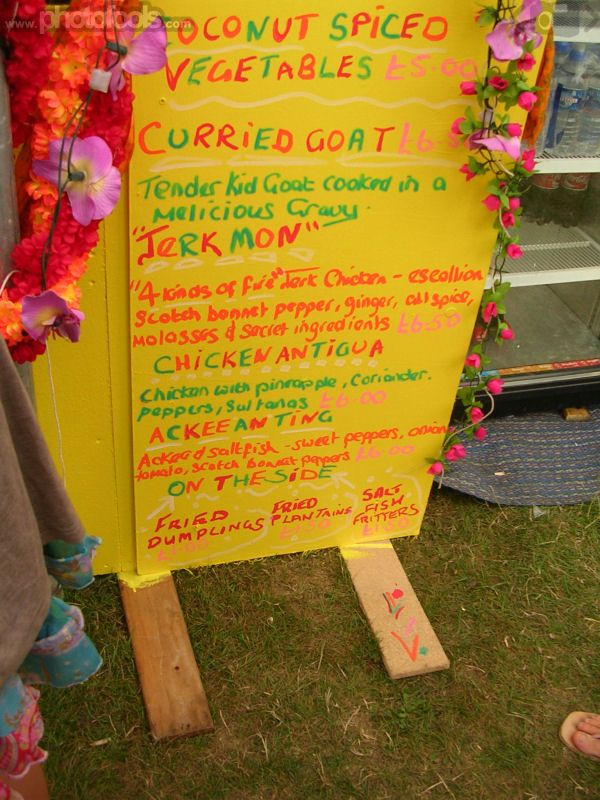 www.phototools.com
COCONUT SPICED
VEGETABLES £5.00
CURRIED GOAT £6.50
Tender Kid Goat cooked in a
Malicious Gravy.
"JERK MON"
"4 kinds of fire" Jerk Chicken - escallion
Scotch bonnet pepper, ginger, allspice,
molasses & secret ingredients £6.50
CHICKEN ANTIGUA
Chicken with pineapple, Coriander.
peppers, Sultanas £6.00
ACKEE AN TING
Ackee & saltfish - sweet peppers, onion
tomato, scotch bonnet peppers £6.00
ON THE SIDE
FRIED DUMPLINGS £1.00
FRIED PLANTAINS £1.50
SALT FISH FRITTERS £1.50